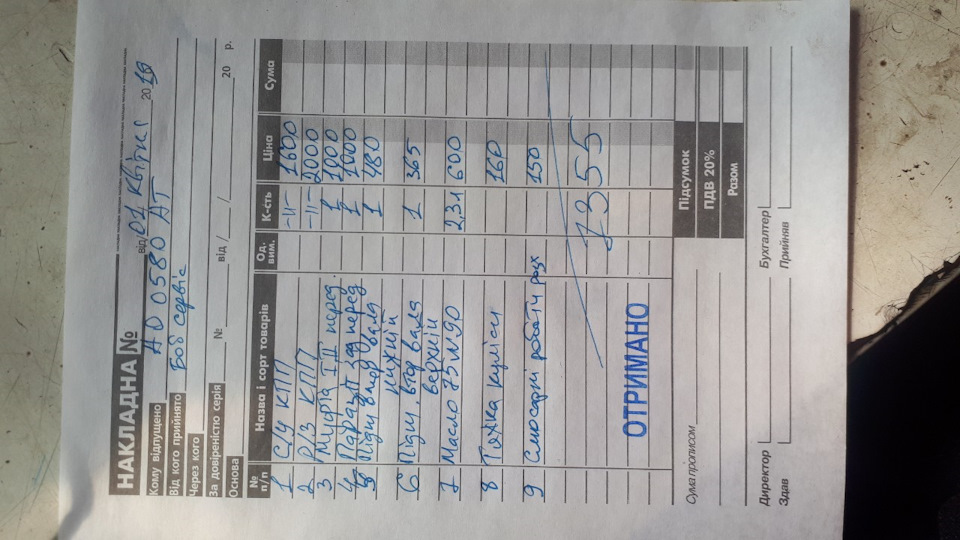 НАКЛАДНА №
від 01 квітня 2019
Кому відпущено АО 0580 АТ
Від кого прийнято Боб сервіс
Через кого
За довіреністю серія № від / / 20 р.
Основа
№ п/п Назва і сорт товарів Од. вим. К-сть Ціна Сума
1 С/у КПП -11- 1600
2 Р/З КПП -11- 2000
3 Муфта I II перед. 1 1000
4 зад перед 1 1000
5 Підш втор вала 1 480
нижній
6 Підш втор вала 1 365
верхній
7 Масло 75W90 2,3л 600
8 Тяжка куліси 160
9 роботи 150
7355
ОТРИМАНО
Підсумок
ПДВ 20%
Разом
Сума прописом
Директор Бухгалтер
Здав Прийняв